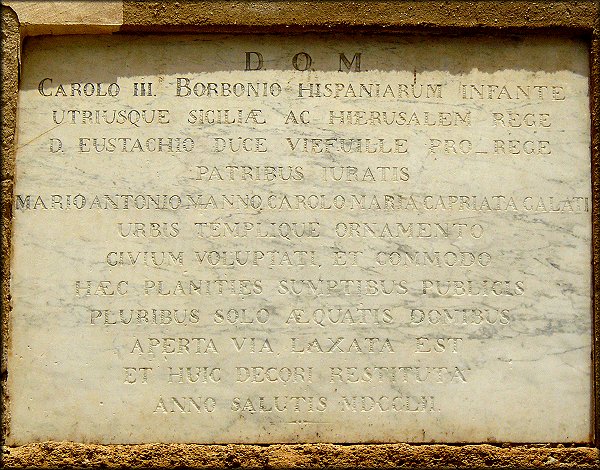 D O M
CAROLO III. BORBONIO HISPANIARUM INFANTE
UTRIUSQUE SICILIÆ AC HIERUSALEM REGE
D. EUSTACHIO DUCE VIEFUILLE PRO_REGE
PATRIBUS IURATIS
MARIO ANTONIO MANNO, CAROLO MARIA CAPRIATA GALATI
URBIS TEMPLIQUE ORNAMENTO
CIVIUM VOLUPTATI, ET COMMODO
HÆC PLANITIES SUMPTIBUS PUBLICIS
PLURIBUS SOLO ÆQUATIS DOMIBUS
APERTA VIA LAXATA EST
ET HUIC DECORI RESTITUTA
ANNO SALUTIS MDCCLII.